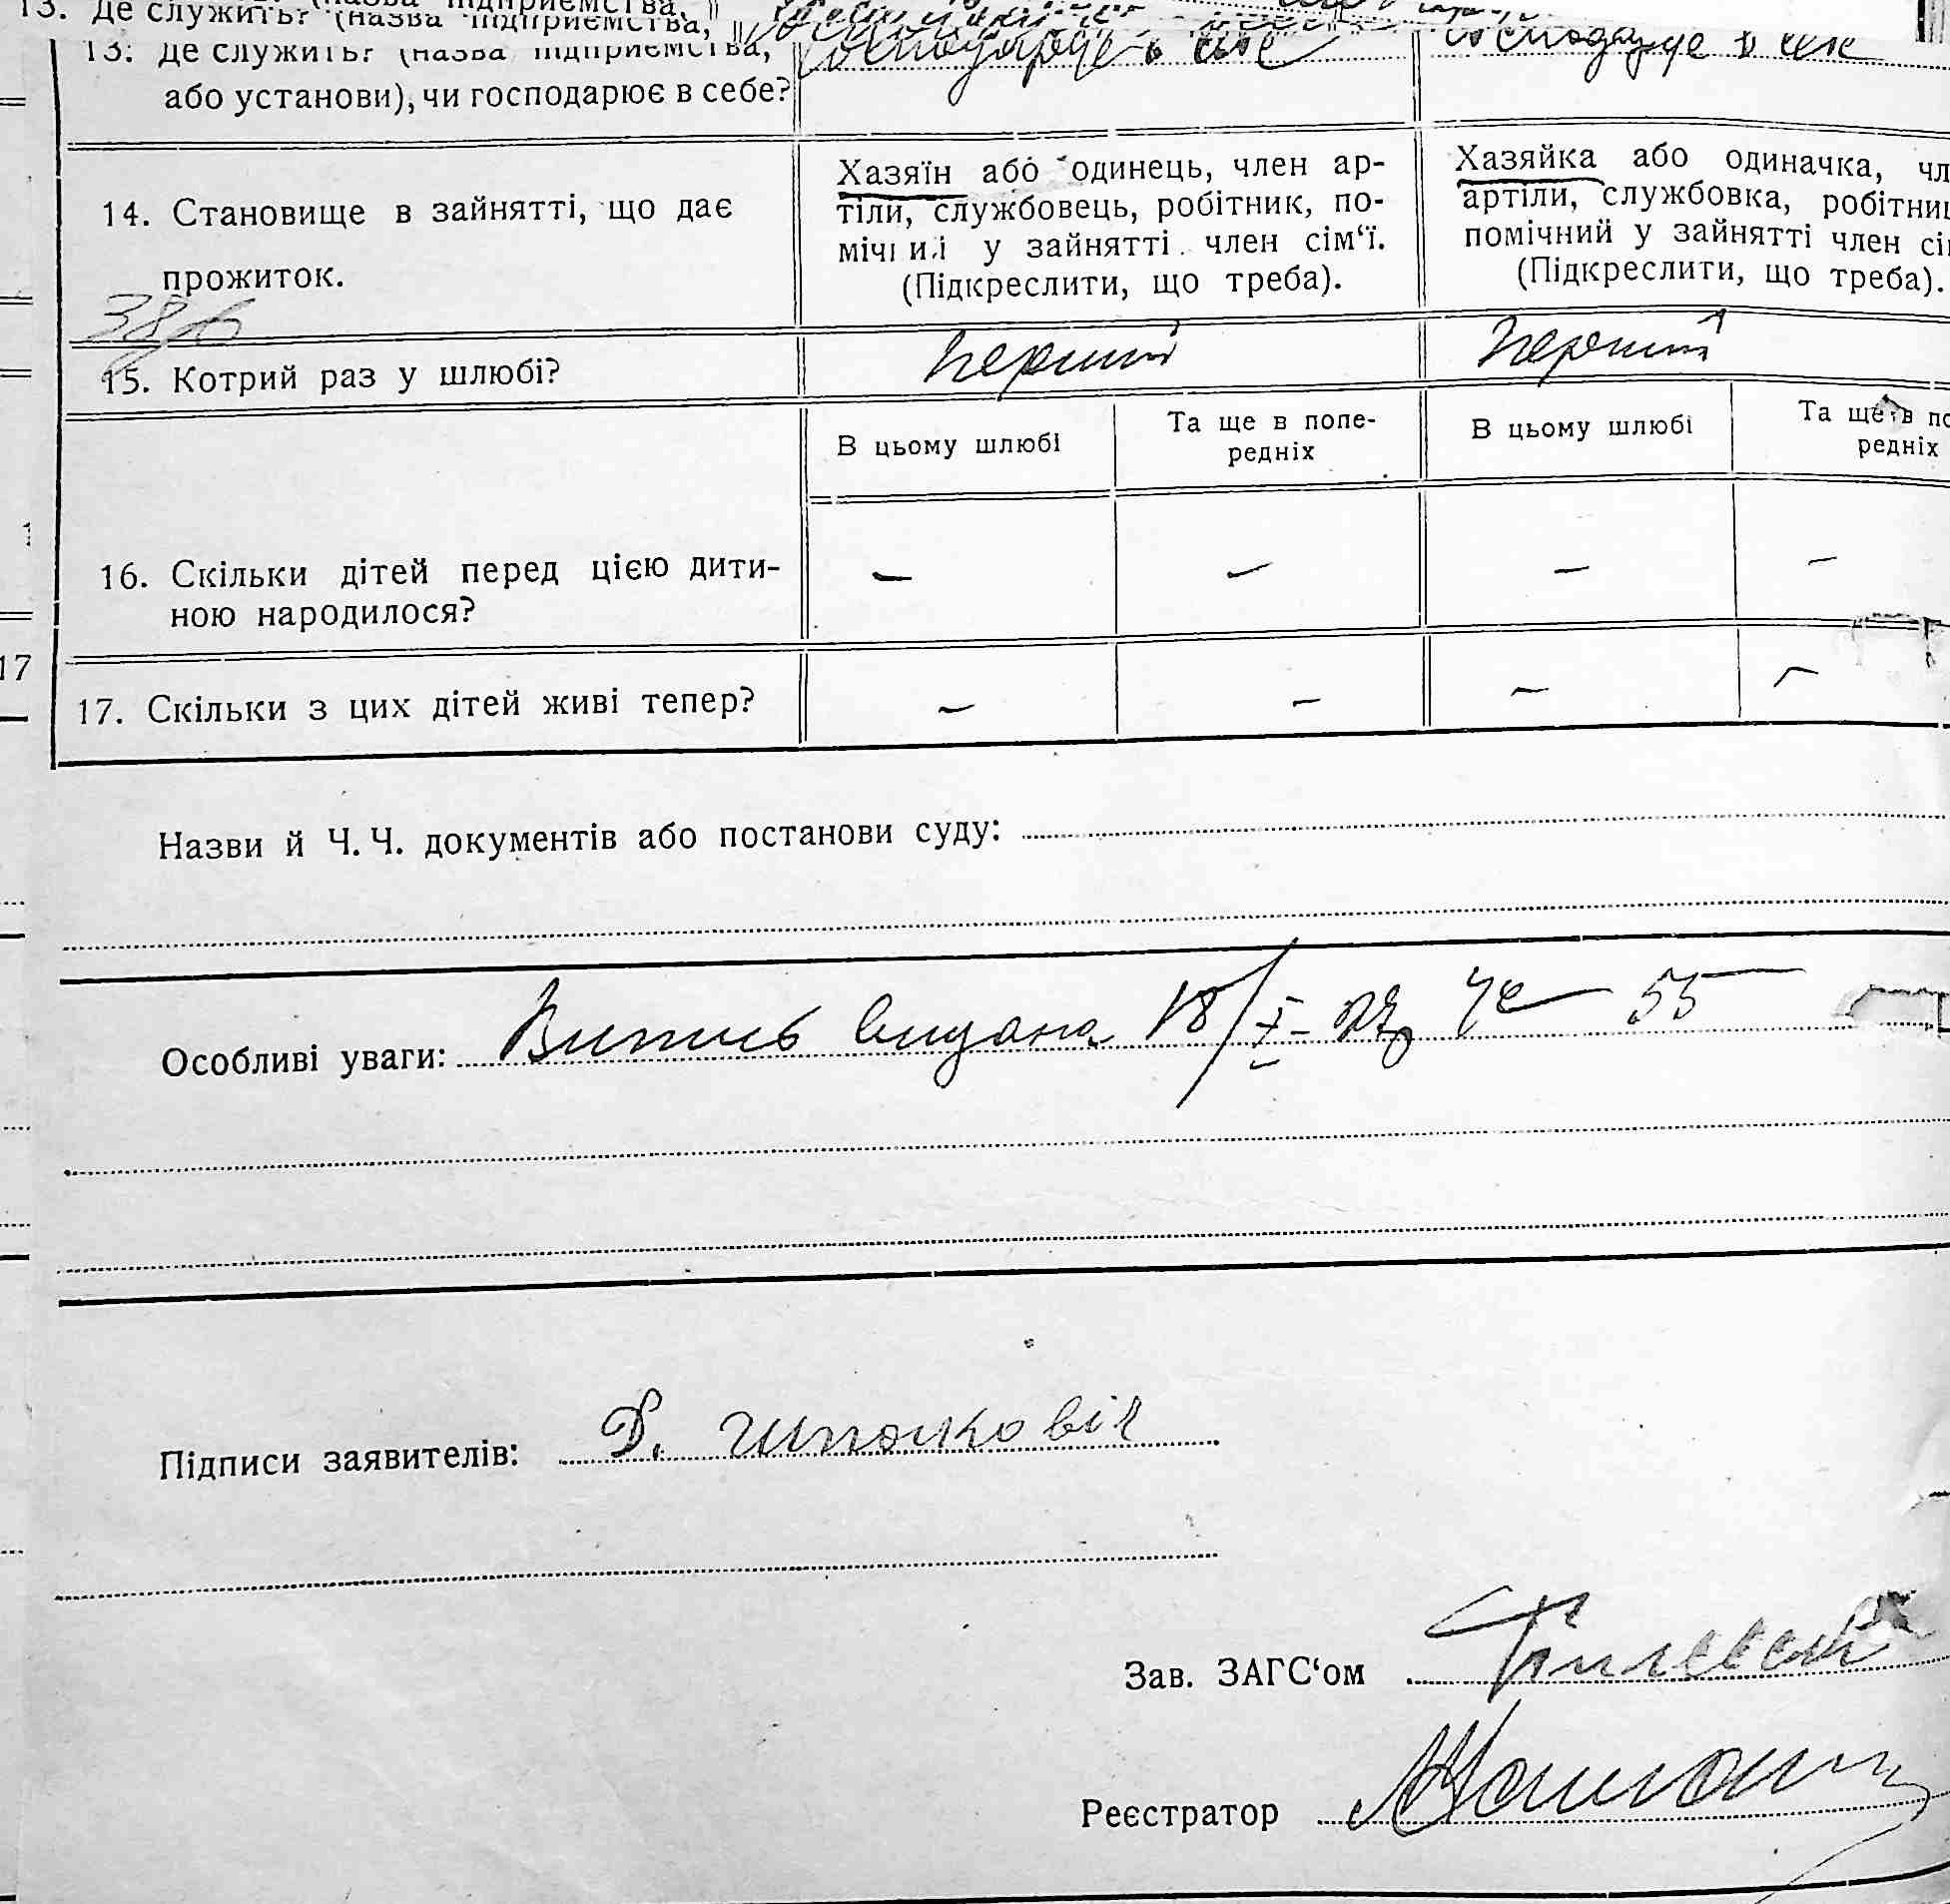 13. Де служить? (назва підприємства,
13. Де служить? (назва підприємства, господарює в себе господарює в себе
або установи), чи господарює в себе?
14. Становище в зайнятті, що дає
прожиток.
Хазяїн або одинець, член ар-
тіли, службовець, робітник, по-
мічний у зайнятті член сім‘ї.
(Підкреслити, що треба).
Хазяйка або одиначка, чл
артіли, службовка, робітниц
помічний у зайнятті член сім
(Підкреслити, що треба).
15. Котрий раз у шлюбі? перший перший
В цьому шлюбі
Та ще в попе-
редніх
В цьому шлюбі
Та ще в по
редніх
16. Скільки дітей перед цією дити-
ною народилося?
– – – –
17
17. Скільки з цих дітей живі тепер? – – – –
Назви й Ч. Ч. документів або постанови суду:
Особливі уваги: Витись видана 18/I- 55
Підписи заявителів: Р. Шполковіч
Зав. ЗАГС‘ом
Реєстратор